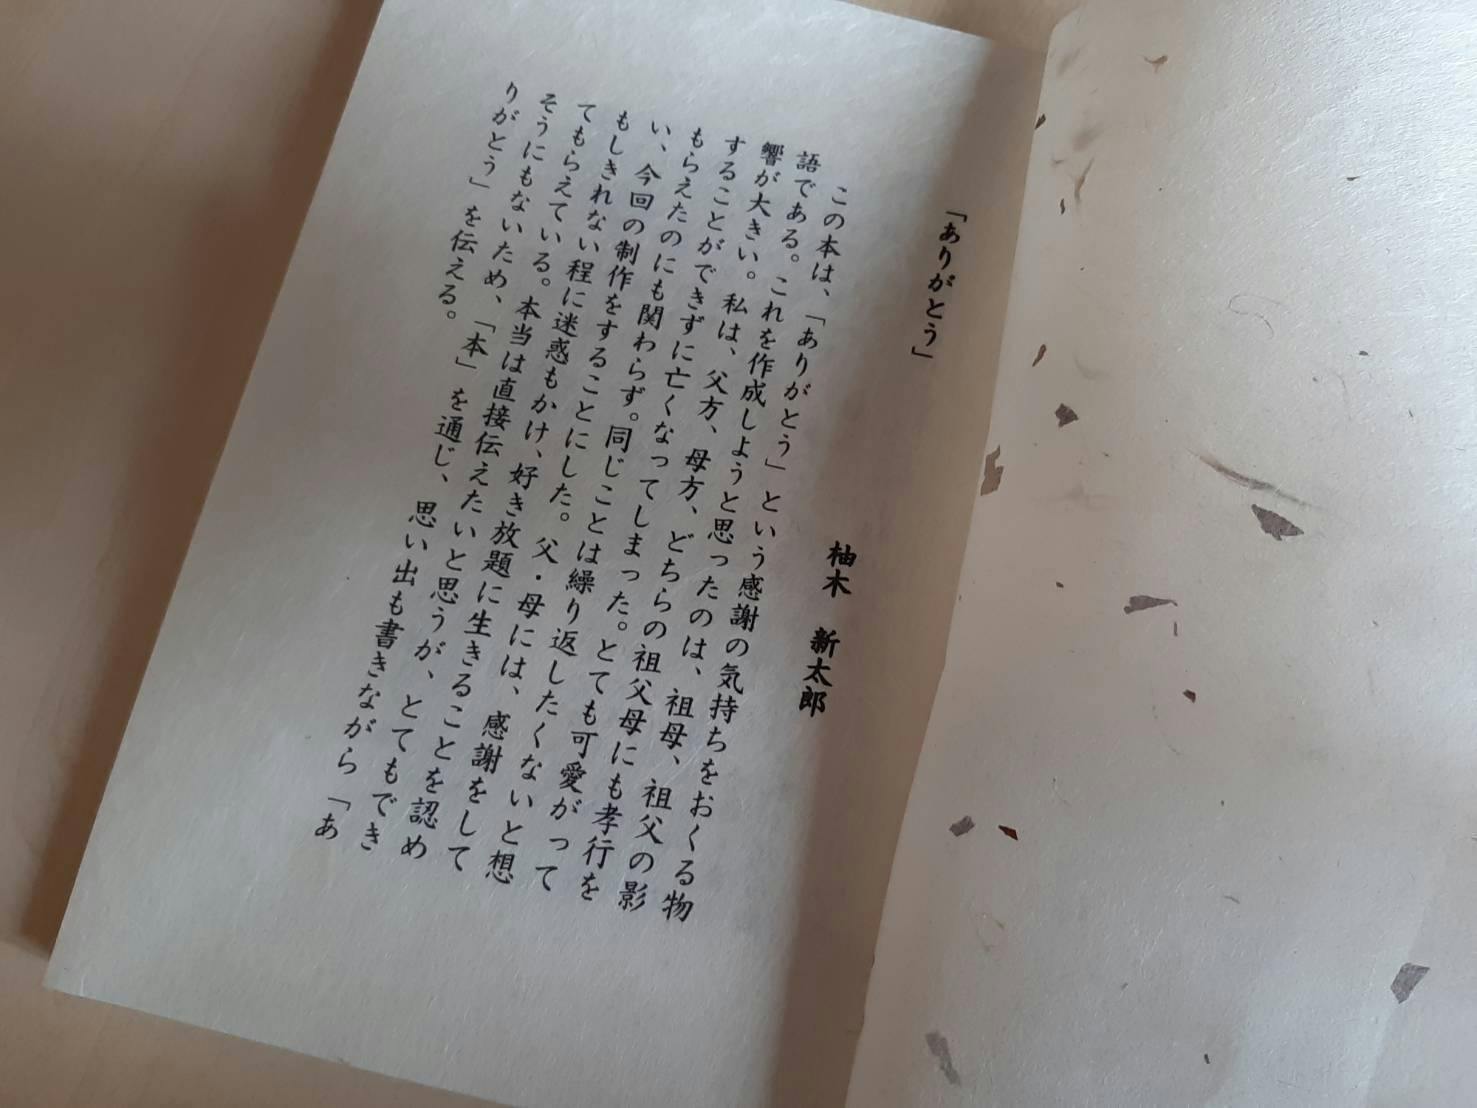 「ありがとう」
柚木 新太郎
この本は、「ありがとう」という感謝の気持ちをおくる物
語である。これを作成しようと思ったのは、祖母、祖父の影
響が大きい。私は、父方、母方、どちらの祖父母にも孝行を
することができずに亡くなってしまった。とても可愛がって
もらえたのにも関わらず。同じことは繰り返したくないと想
い、今回の制作をすることにした。父・母には、感謝をして
もしきれない程に迷惑もかけ、好き放題に生きることを認め
てもらえている。本当は直接伝えたいと思うが、とてもでき
そうにもないため、「本」を通じ、思い出も書きながら「あ
りがとう」を伝える。